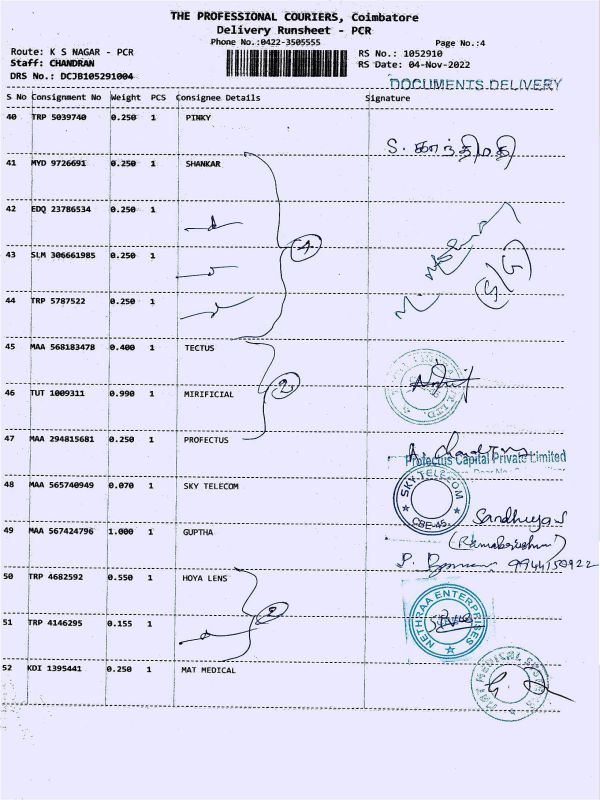 THE PROFESSIONAL COURIERS, Coimbatore
Delivery Runsheet - PCR
Phone No.:0422-3505555 Page No.:4
Route: K S NAGAR - PCR RS No.: 1052910
Staff: CHANDRAN RS Date: 04-Nov-2022
DRS No.: DCJB105291004
DOCUMENTS DELIVERY
S No Consignment No Weight PCS Consignee Details Signature
40 TRP 5039740 0.250 1 PINKY
S. காந்திமதி
41 MYD 9726691 0.250 1 SHANKAR
42 EDQ 23786534 0.250 1
43 SLM 306661985 0.250 1
4
44 TRP 5787522 0.250 1
45 MAA 568183478 0.400 1 TECTUS
46 TUT 1009311 0.990 1 MIRIFICIAL
2
47 MAA 294815681 0.250 1 PROFECTUS
Profectus Capital Private Limited
48 MAA 565740949 0.070 1 SKY TELECOM
SKY TELECOM
CBE-45.
49 MAA 567424796 1.000 1 GUPTHA
9944150922
50 TRP 4682592 0.550 1 HOYA LENS
51 TRP 4146295 0.155 1
2
NETHRAA ENTERPRISES
52 KDI 1395441 0.250 1 MAT MEDICAL